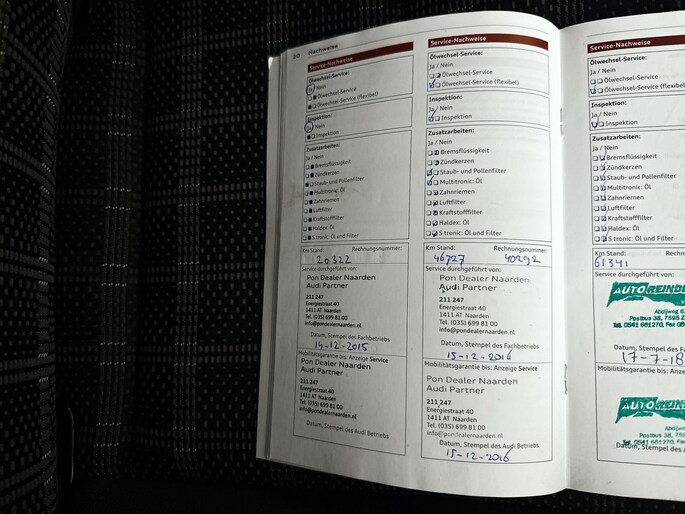 88 Nachweise
Service-Nachweise
Ölwechsel-Service:
Ja / Nein
Ölwechsel-Service
Ölwechsel-Service (flexibel)
Inspektion:
Ja / Nein
Inspektion
Zusatzarbeiten:
Ja / Nein
Bremsflüssigkeit
Zündkerzen
Staub- und Pollenfilter
Multitronic: Öl
Zahnriemen
Luftfilter
Kraftstofffilter
Haldex: Öl
S tronic: Öl und Filter
Km Stand: Rechnungsnummer:
20322
Service durchgeführt von:
Pon Dealer Naarden
Audi Partner
211 247
Energiestraat 40
1411 AT Naarden
Tel. (035) 699 81 00
info@pondealernaarden.nl
Datum, Stempel des Fachbetriebs
14-12-2015
Mobilitätsgarantie bis: Anzeige Service
Pon Dealer Naarden
Audi Partner
211 247
Energiestraat 40
1411 AT Naarden
Tel. (035) 699 81 00
info@pondealernaarden.nl
Datum, Stempel des Audi Betriebs
Service-Nachweise
Ölwechsel-Service:
Ja / Nein
Ölwechsel-Service
Ölwechsel-Service (flexibel)
Inspektion:
Ja / Nein
Inspektion
Zusatzarbeiten:
Ja / Nein
Bremsflüssigkeit
Zündkerzen
Staub- und Pollenfilter
Multitronic: Öl
Zahnriemen
Luftfilter
Kraftstofffilter
Haldex: Öl
S tronic: Öl und Filter
Km Stand: Rechnungsnummer:
46727 40292
Service durchgeführt von:
Pon Dealer Naarden
Audi Partner
211 247
Energiestraat 40
1411 AT Naarden
Tel. (035) 699 81 00
info@pondealernaarden.nl
Datum, Stempel des Fachbetriebs
15-12-2016
Mobilitätsgarantie bis: Anzeige Service
Pon Dealer Naarden
Audi Partner
211 247
Energiestraat 40
1411 AT Naarden
Tel. (035) 699 81 00
info@pondealernaarden.nl
Datum, Stempel des Audi Betriebs
15-12-2016
Service-Nachweise
Ölwechsel-Service:
Ja / Nein
Ölwechsel-Service
Ölwechsel-Service (flexibel
Inspektion:
Ja / Nein
Inspektion
Zusatzarbeiten:
Ja / Nein
Bremsflüssigkeit
Zündkerzen
Staub- und Pollenfilter
Multitronic: Öl
Zahnriemen
Luftfilter
Kraftstofffilter
Haldex: Öl
S tronic: Öl und Filter
Km Stand: Rechn
61341
Service durchgeführt von:
AUTO REINDE
Abdijweg
Postbus 38, 7595 Z
Tel. 0541 661270, Fax
Datum, Stempel des
17-7-18
Mobilitätsgarantie bis: Anze
AUTO REIND
Abdijweg
Postbus 38, 759
Tel. 0541 661270, Fa
Datum, Stempel des A